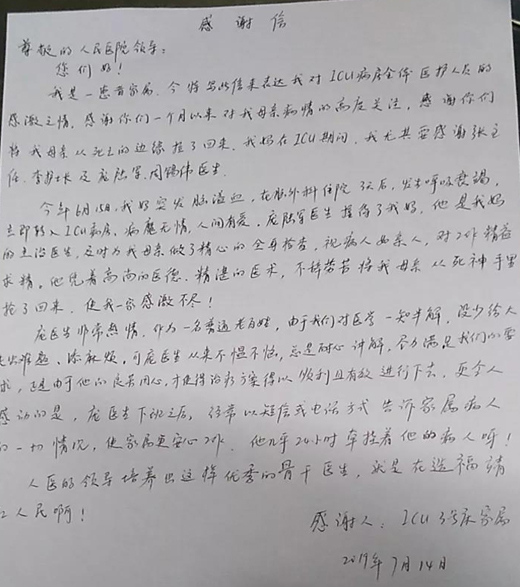 感谢信
尊敬的人民医院领导：
您们好！
我是一患者家属，今特写此信来表达我对ICU病房全体医护人员的
感激之情。感谢你们一个月以来对我母亲病情的高度关注，感谢你们
将我母亲从死亡的边缘拉了回来。我妈在ICU期间，我尤其要感谢张主
任、李护士长及庞陆军、周锡伟医生。
今年6月15日，我妈突发脑溢血，在脑外科住院3天后，发生呼吸衰竭，
立即转入ICU病房，病魔无情，人间有爱，庞陆军医生接待了我妈，他是我妈
的主治医生，及时为我母亲做了精心的全身检查，视病人如亲人，对工作精益
求精，他凭着高尚的医德、精湛的医术，不辞劳苦将我母亲从死神手里
抢了回来，使我一家感激不尽！
庞医生非常热情，作为一名普通老百姓，由于我们对医学一知半解，没少给大
夫出难题、添麻烦，可庞医生从来不愠不怒，总是耐心讲解，尽力满足我们的要
求，正是由于他的良苦用心，才使得治疗方案得以顺利且有效进行下去。更令人
感动的是，庞医生下班之后，经常以短信或电话方式告诉家属病人
的一切情况，使家属更安心工作。他几乎24小时牵挂着他的病人呀！
人医的领导培养出这样优秀的骨干医生，就是在造福靖
江人民啊！
感谢人：ICU 3号床家属
2019年7月14日